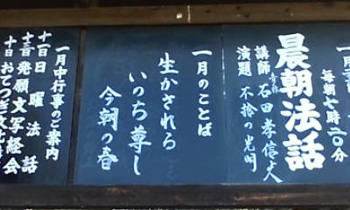 毎朝七時二〇分
晨朝法話
講師 石田孝信
演題 不捨の光明
一月のことば
生かされる
いのち尊し
今朝の春
一月中行事のご案内
十一日 日曜法話
発願文写経会
おてつぎ